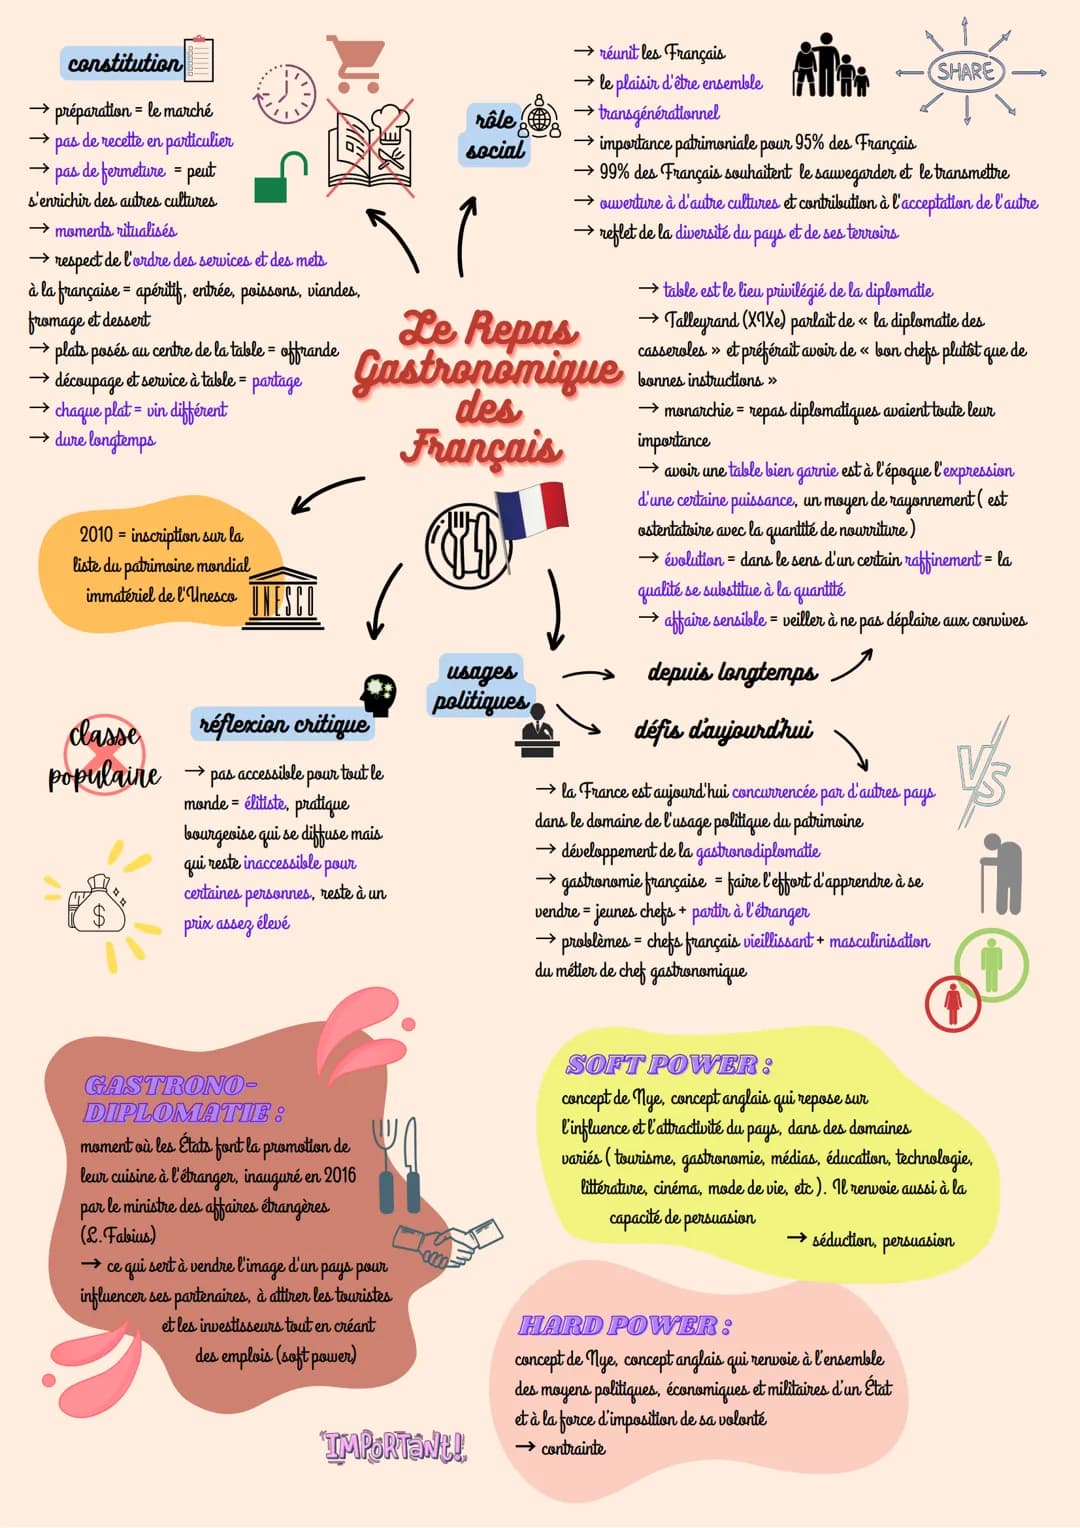 constitution
→ préparation = le marché
→ pas de recette en particulier
→ pas de fermeture = peut
s'enrichir des autres cultures
→ moments ritualisés
→ respect de l'ordre des services et des mets
à la française = apéritif, entrée, poissons, viandes,
fromage et dessert
→ plats posés au centre de la table = offrande
→ découpage et service à table = partage
→ chaque plat = vin différent
→ dure longtemps
rôle
social
→ réunit les Français
→ le plaisir d'être ensemble
→ transgénérationnel
→ importance patrimoniale pour 95% des Français
→ 99% des Français souhaitent le sauvegarder et le transmettre
→ ouverture à d'autre cultures et contribution à l'acceptation de l'autre
→ reflet de la diversité du pays et de ses terroirs
SHARE
Le Repas
Gastronomique
des
Français
→ table est le lieu privilégié de la diplomatie
→ Talleyrand (XIXe) parlait de « la diplomatie des
casseroles » et préférait avoir de « bon chefs plutôt que de
bonnes instructions »
→ monarchie = repas diplomatiques avaient toute leur
importance
→ avoir une table bien garnie est à l'époque l'expression
d'une certaine puissance, un moyen de rayonnement ( est
ostentatoire avec la quantité de nourriture )
→ évolution = dans le sens d'un certain raffinement = la
qualité se substitue à la quantité
→ affaire sensible = veiller à ne pas déplaire aux convives
2010 = inscription sur la
liste du patrimoine mondial
immatériel de l'Unesco
UNESCO
usages
politiques
depuis longtemps
défis d'aujourd'hui
réflexion critique
classe
populaire
→ pas accessible pour tout le
monde = élitiste, pratique
bourgeoise qui se diffuse mais
qui reste inaccessible pour
certaines personnes, reste à un
prix assez élevé
$
→ la France est aujourd'hui concurrencée par d'autres pays
dans le domaine de l'usage politique du patrimoine
→ développement de la gastronodiplomatie
→ gastronomie française = faire l'effort d'apprendre à se
vendre = jeunes chefs + partir à l'étranger
→ problèmes = chefs français vieillissant + masculinisation
du métier de chef gastronomique
VS
GASTRONO-
DIPLOMATIE :
moment où les États font la promotion de
leur cuisine à l'étranger, inauguré en 2016
par le ministre des affaires étrangères
(L.Fabius)
→ ce qui sert à vendre l'image d'un pays pour
influencer ses partenaires, à attirer les touristes
et les investisseurs tout en créant
des emplois (soft power)
SOFT POWER :
concept de Nye, concept anglais qui repose sur
l'influence et l'attractivité du pays, dans des domaines
variés ( tourisme, gastronomie, médias, éducation, technologie,
littérature, cinéma, mode de vie, etc ). Il renvoie aussi à la
capacité de persuasion
→ séduction, persuasion
HARD POWER :
concept de Nye, concept anglais qui renvoie à l'ensemble
des moyens politiques, économiques et militaires d'un État
et à la force d'imposition de sa volonté
→ contrainte
IMPORTANT!